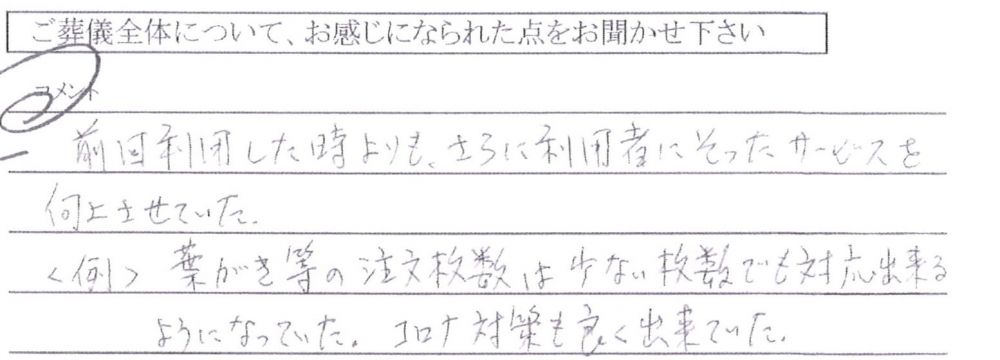 ご葬儀全体について、お感じになられた点をお聞かせ下さい
コメント
前回利用した時よりも、さらに利用者にそったサービスを
向上させていた。
<例> 葉がき等の注文枚数は少ない枚数でも対応出来る
ようになっていた。コロナ対策も良く出来ていた。